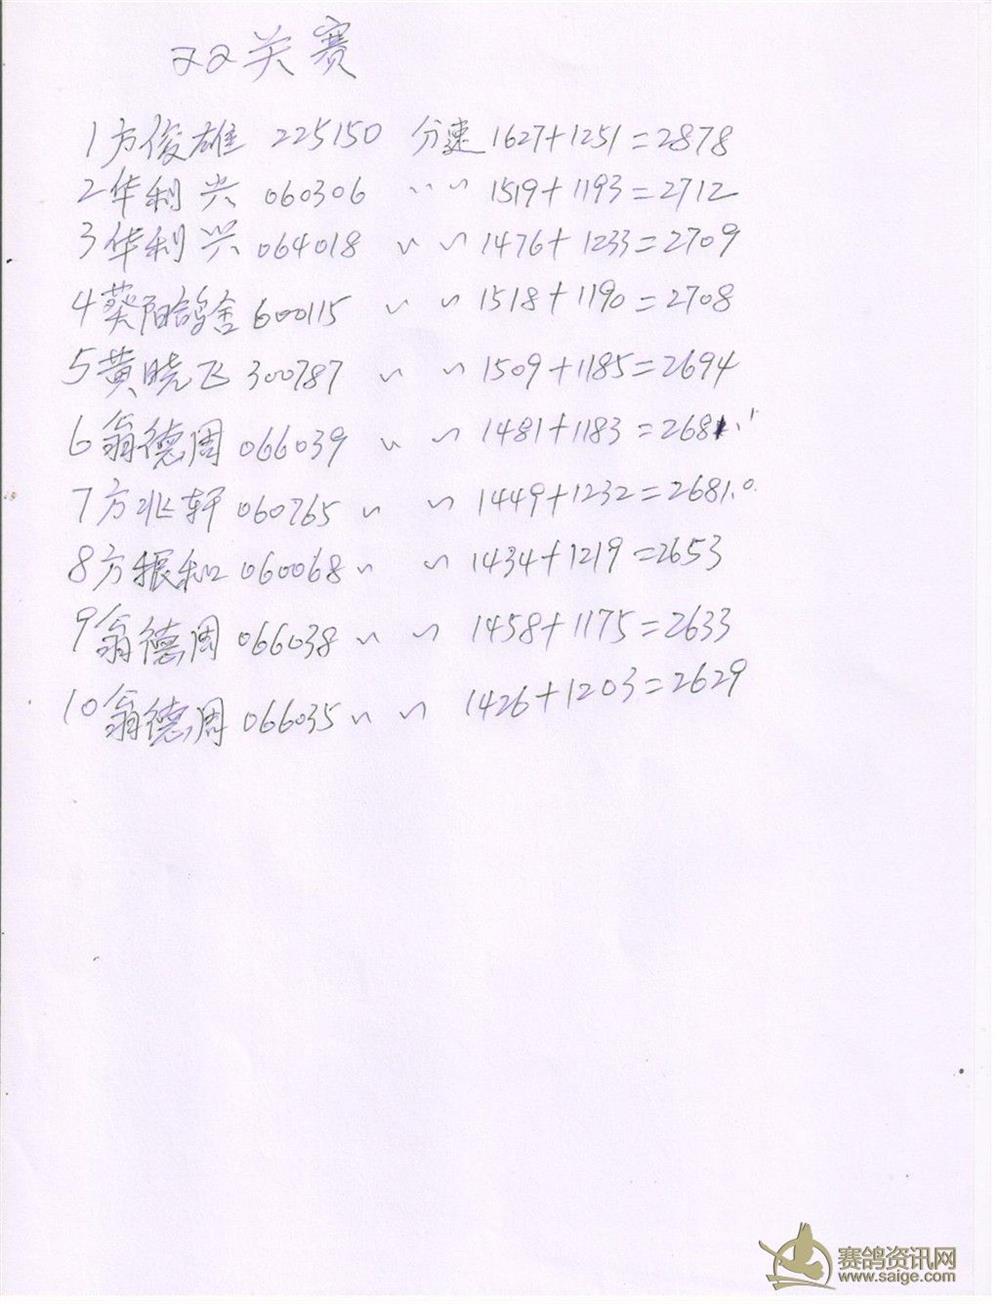 双关赛
1 方俊雄 225150 分速 1627+1251=2878
2 华利兴 060306 〃 〃 1519+1193=2712
3 华利兴 064018 〃 〃 1476+1233=2709
4 葵阳鸽舍 600115 〃 〃 1518+1190=2708
5 黄晓飞 300787 〃 〃 1509+1185=2694
6 翁德周 066039 〃 〃 1481+1183=2681.1
7 方兆轩 060765 〃 〃 1449+1232=2681.0.
8 方振和 060068 〃 〃 1434+1219=2653
9 翁德周 066038 〃 〃 1458+1175=2633
10 翁德周 066035 〃 〃 1426+1203=2629
赛鸽资讯网
www.saige.com